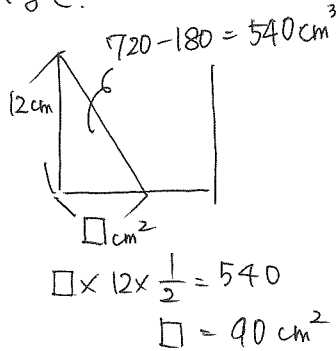 720-180 = 540cm³
12cm
□cm²
□× 12× 1/2 = 540
□ = 90 cm²